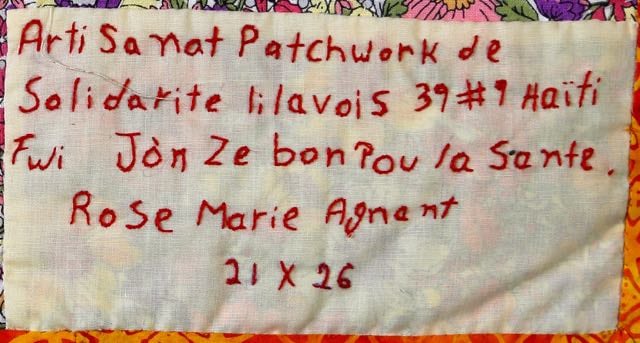 Artisanat Patchwork de
Solidarite lilavois 39#9 Haïti
Fwi Jòn Ze bon Pou la Sante.
Rose Marie Agnant
21 X 26